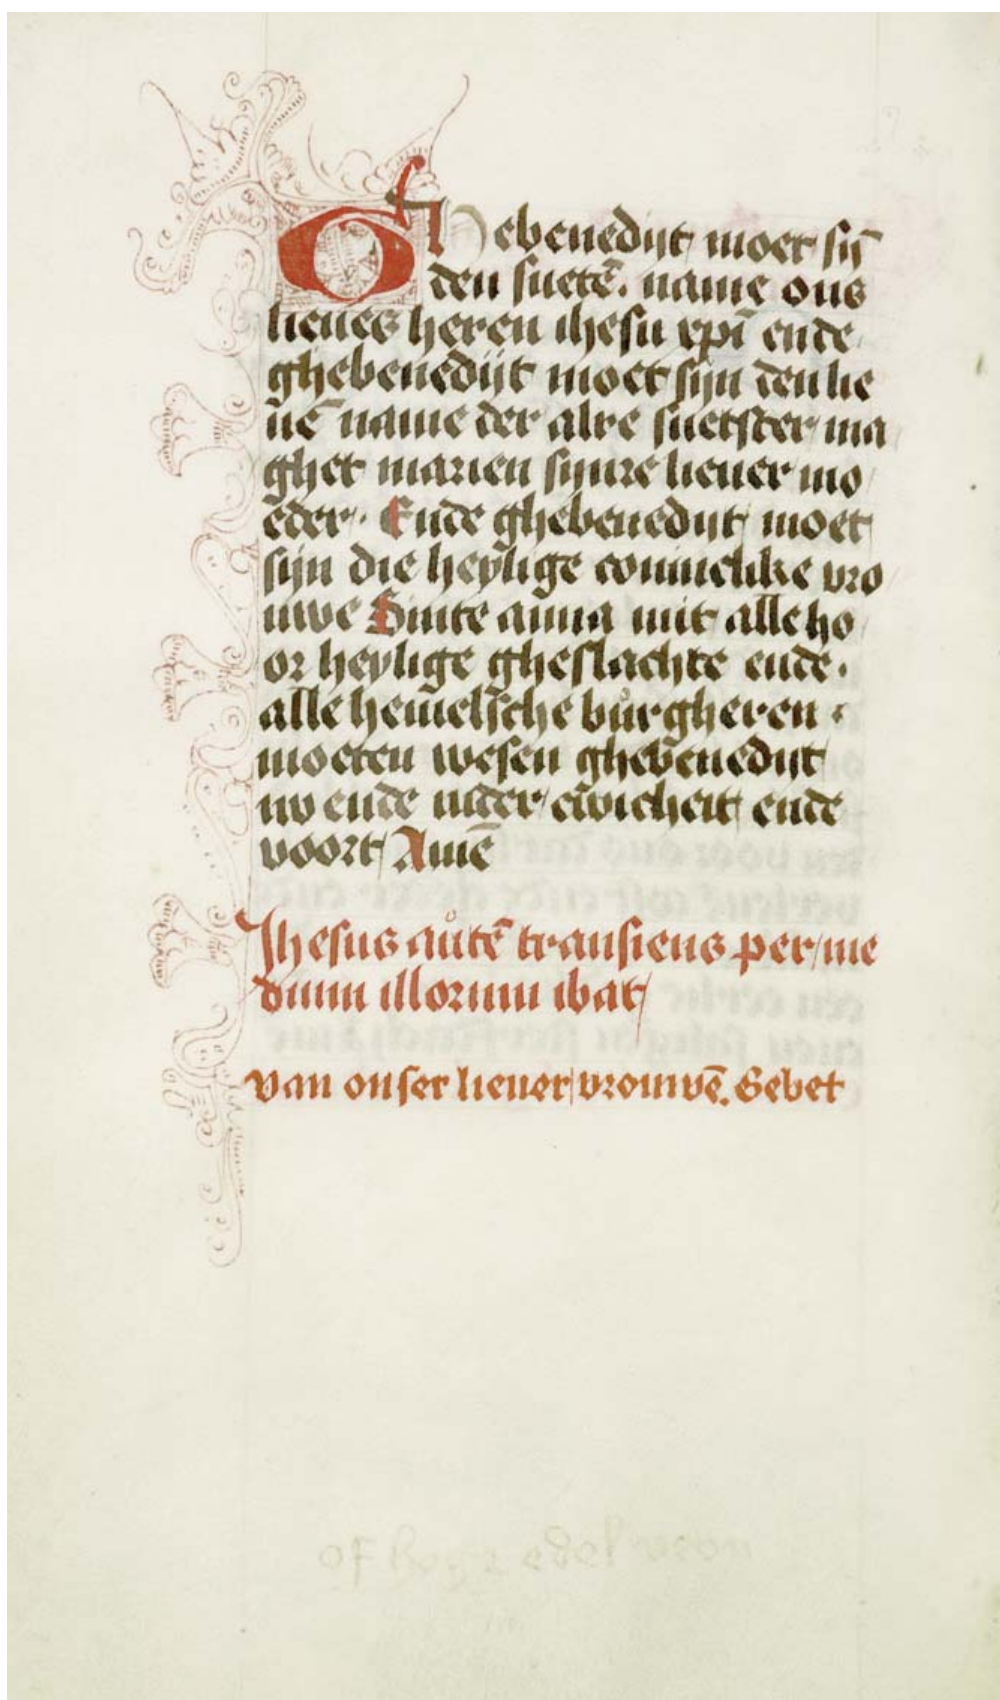 Ghebenedijt moet sij̄
den suetē. name ons
lieues heren ihesu xpī ende
ghebenedijt moet sijn den lie
uē name der alre suetster ma
ghet marien sijnre lieuer mo
eder. Ende ghebenedijt moet
sijn die heylige coninclike vro
uwe Sinte anna mit alle ho
or heylige gheslachte ende.
alle hem̄elsche burgheren
moeten wesen ghebenedijt
nv ende inder ewicheit ende
voort Amē
Ihesus autē transiens per me
dium illorum ibat
van onser lieuer vrouwē. Gebet
of hoge edel vrou